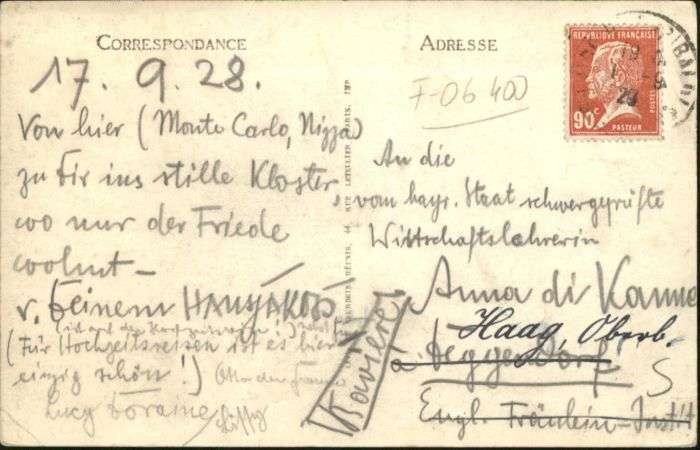 CORRESPONDANCE
17. 9. 28.
Von hier (Monte Carlo, Nizza)
zu Dir ins stille Kloster,
wo nur der Friede
wohnt –
v. Deinem HANSJAKOB
(Für Hochzeitsreisen ist es hier
einzig schön!)
Lucy Doraine
ADRESSE
F-06 400
REPUBLIQUE FRANÇAISE
POSTES
90c
PASTEUR
An die
vom bayr. Staat schwergeprüfte
Wirtschaftslehrerin
Anna di Kanna
Haag, Oberb.
à Deggendorf
Engl. Fräulein-Instit
(Bavière)